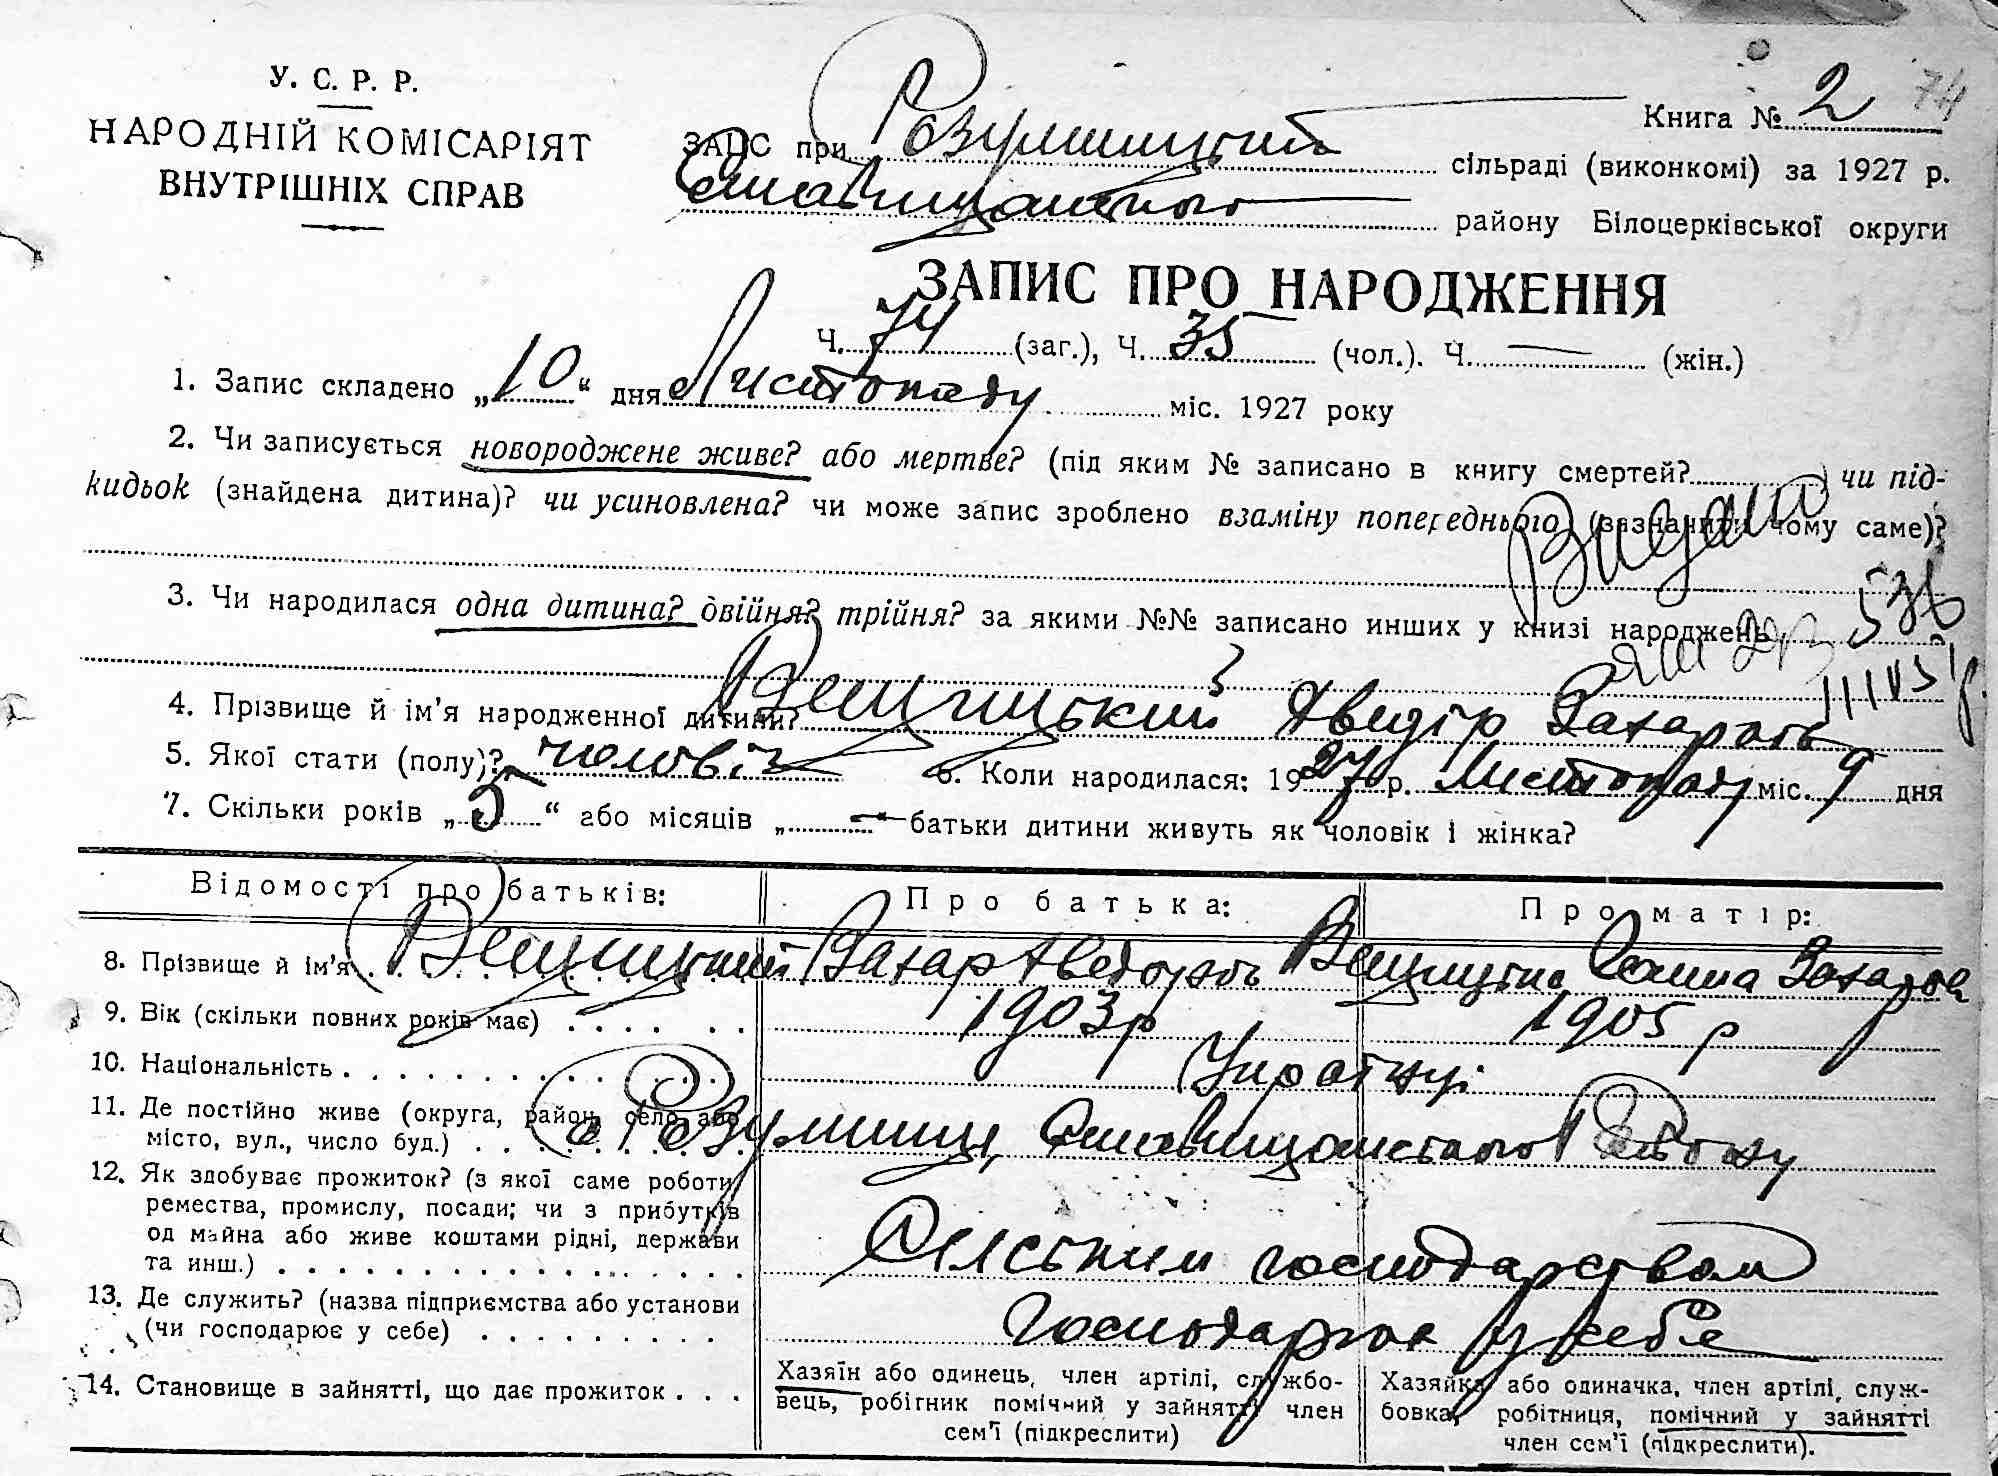 У. С. Р. Р.
НАРОДНІЙ КОМІСАРІЯТ
ВНУТРІШНІХ СПРАВ
Книга № 2 74
ЗАГС при Розумницкий сільраді (виконкомі) за 1927 р.
Ставищанського району Білоцерківської округи
ЗАПИС ПРО НАРОДЖЕННЯ
Ч. 74 (заг.), Ч. 35 (чол.). Ч. — (жін.)
1. Запис складено „10“ дня Листопаду міс. 1927 року
2. Чи записується новороджене живе? або мертве? (під яким № записано в книгу смертей? ) чи під-
кидьок (знайдена дитина)? чи усиновлена? чи може запис зроблено взаміну попереднього (зазначити чому саме)?
Видано
3. Чи народилася одна дитина? двійня? трійня? за якими №№ записано инших у книзі народжень
4. Прізвище й ім’я народженної дитини? Вещицький Хведір Захаровъ
5. Якої стати (полу)? чоловіч 6. Коли народилася: 1927 р. Листопаду міс. 9 дня
7. Скільки років „5“ або місяців „—“ батьки дитини живуть як чоловік і жінка?
Відомості про батьків: Про батька: Про матір:
8. Прізвище й ім’я . . . Вещицкий Захар Хведоровъ Вещицька Ганна Захарова
9. Вік (скільки повних років має) . . . . . . 1903 р 1905 р
10. Національність . . . . . . . . . . . . Українці
11. Де постійно живе (округа, район, село або
місто, вул., число буд.) . . . . . . . с Розумниці, Ставищанського Району
12. Як здобуває прожиток? (з якої саме роботи,
ремества, промислу, посади; чи з прибутків
од майна або живе коштами рідні, держави
та инш.) . . . . . . . . . . . . . . . . Сильским господарством
13. Де служить? (назва підприємства або установи
(чи господарює у себе) . . . . . . . . . Господарює у себе
14. Становище в зайнятті, що дає прожиток . . .
Хазяїн або одинець, член артілі, службо-
вець, робігник помічний у зайнятті член
сем’ї (підкреслити)
Хазяйка або одиначка, член артілі, служ-
бовка, робітниця, помічний у зайнятті
член сем’ї (підкреслити).